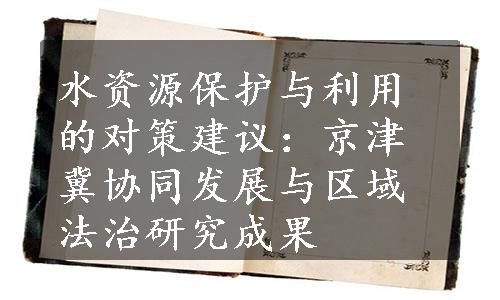 水资源保护与利用
的对策建议：京津
冀协同发展与区域
法治研究成果